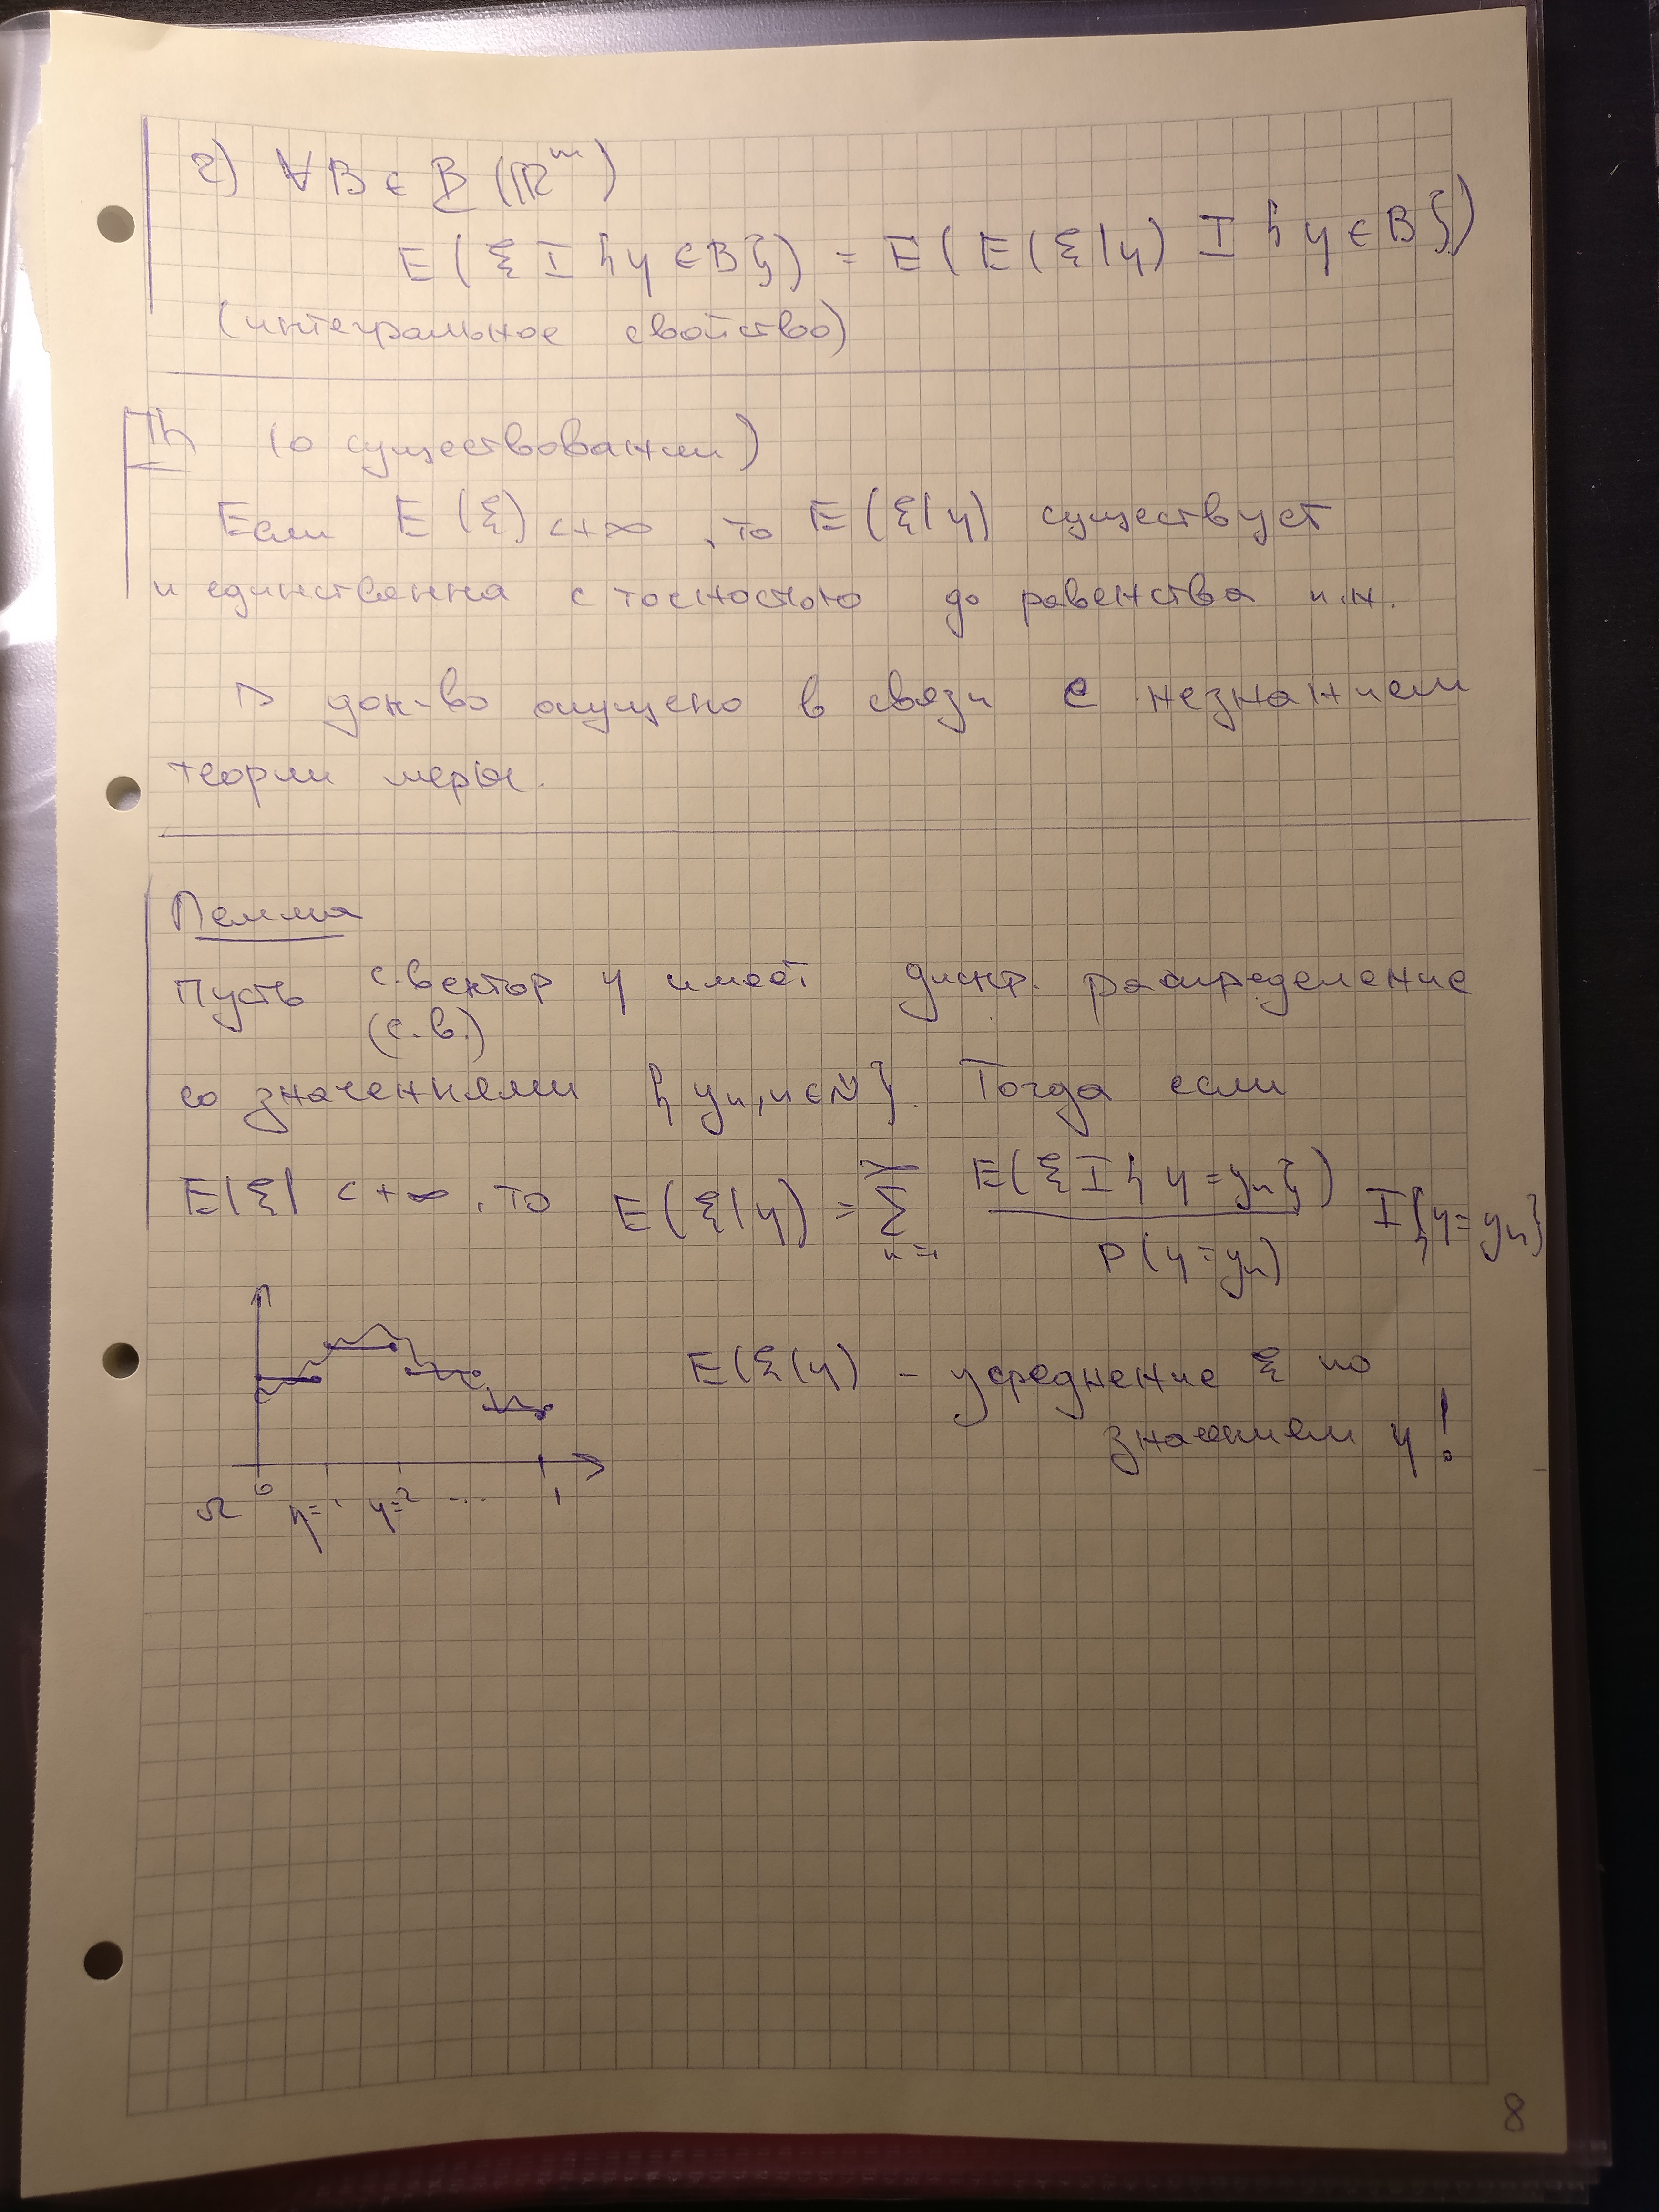 2) ∀B ∈ B (ℝᵐ)
E(ξ I{η ∈ B}) = E(E(ξ|η) I{η ∈ B})
(интегральное свойство)
Th (о существовании)
Если E(ξ) < +∞, то E(ξ|η) существует
и единственна с точностью до равенства п.н.
▷ док-во опущено в связи с незнанием
теории меры.
Лемма
Пусть с.вектор η имеет дискр. распределение
(с.в.)
со значениями {yₙ, n ∈ N}. Тогда если
E|ξ| < +∞, то E(ξ|η) = ∑_{n=1}^{∞} E(ξ I{η = yₙ}) / P(η = yₙ) I{η = yₙ}
E(ξ|η) – усреднение ξ по
значениям η!
Ω 0 η=1 η=2 ... 1
8